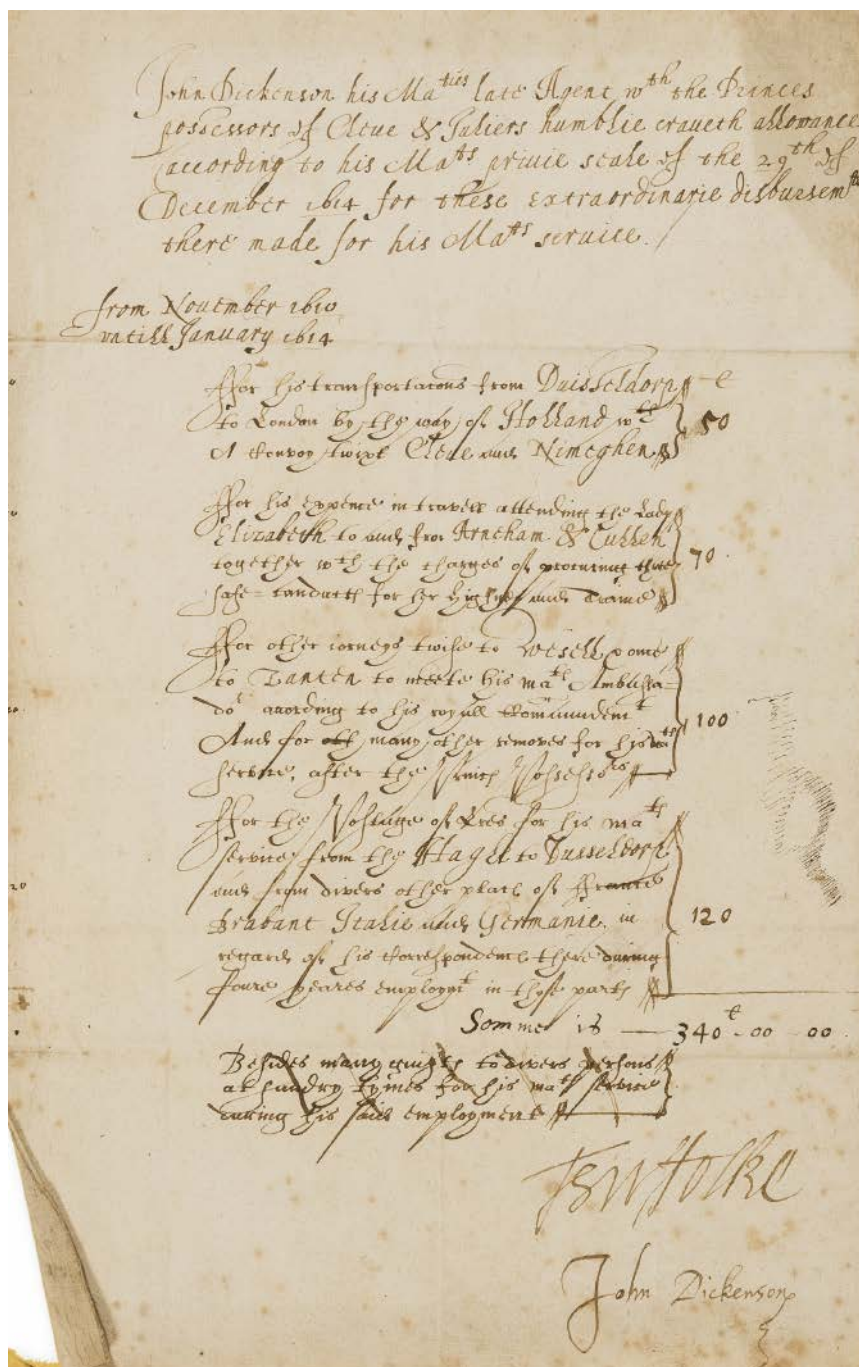 John Dickenson his Ma^ties late Agent w^th the Princes
possessors of Cleue & Juliers humblie craueth allowance
according to his Ma^ts priuie seale of the 29^th of
December 1614 for these extraordinarie disbursem^ts
there made for his Ma^ts seruice./
from Nouember 1610
vntill January 1614
ffor his transportacons from Duisseldorp
to London by the way of Holland w^th
A Conuoy twixt Cleue and Nimeghen
50
ffor his expence in travell attending the Lady
Elizabeth to and from Arneham & Cullen
together w^th the charges of procuring three
safe-conducts for her Highnes and traine
70
ffor other iorneys twise to Wesell & one
to Zanten to meete his ma^ts Ambassa-
do^r according to his royall Commandem^t
And for many other remoues for his ma^ts
seruice, after the Princes Possessors
100
ffor the Postage of lres for his ma^ts
seruice from the Haghe to Dusseldorp
and from divers other places of ffrance
Brabant Italie and Germanie, in
regard of his Correspondence there during
foure yeares employm^t in those parts
120
Somme is — 340^l - 00 - 00
Besides many guifts to divers persons
at sundry tymes for his ma^ts seruice
during his said employment
TSuffolke
John Dickenson